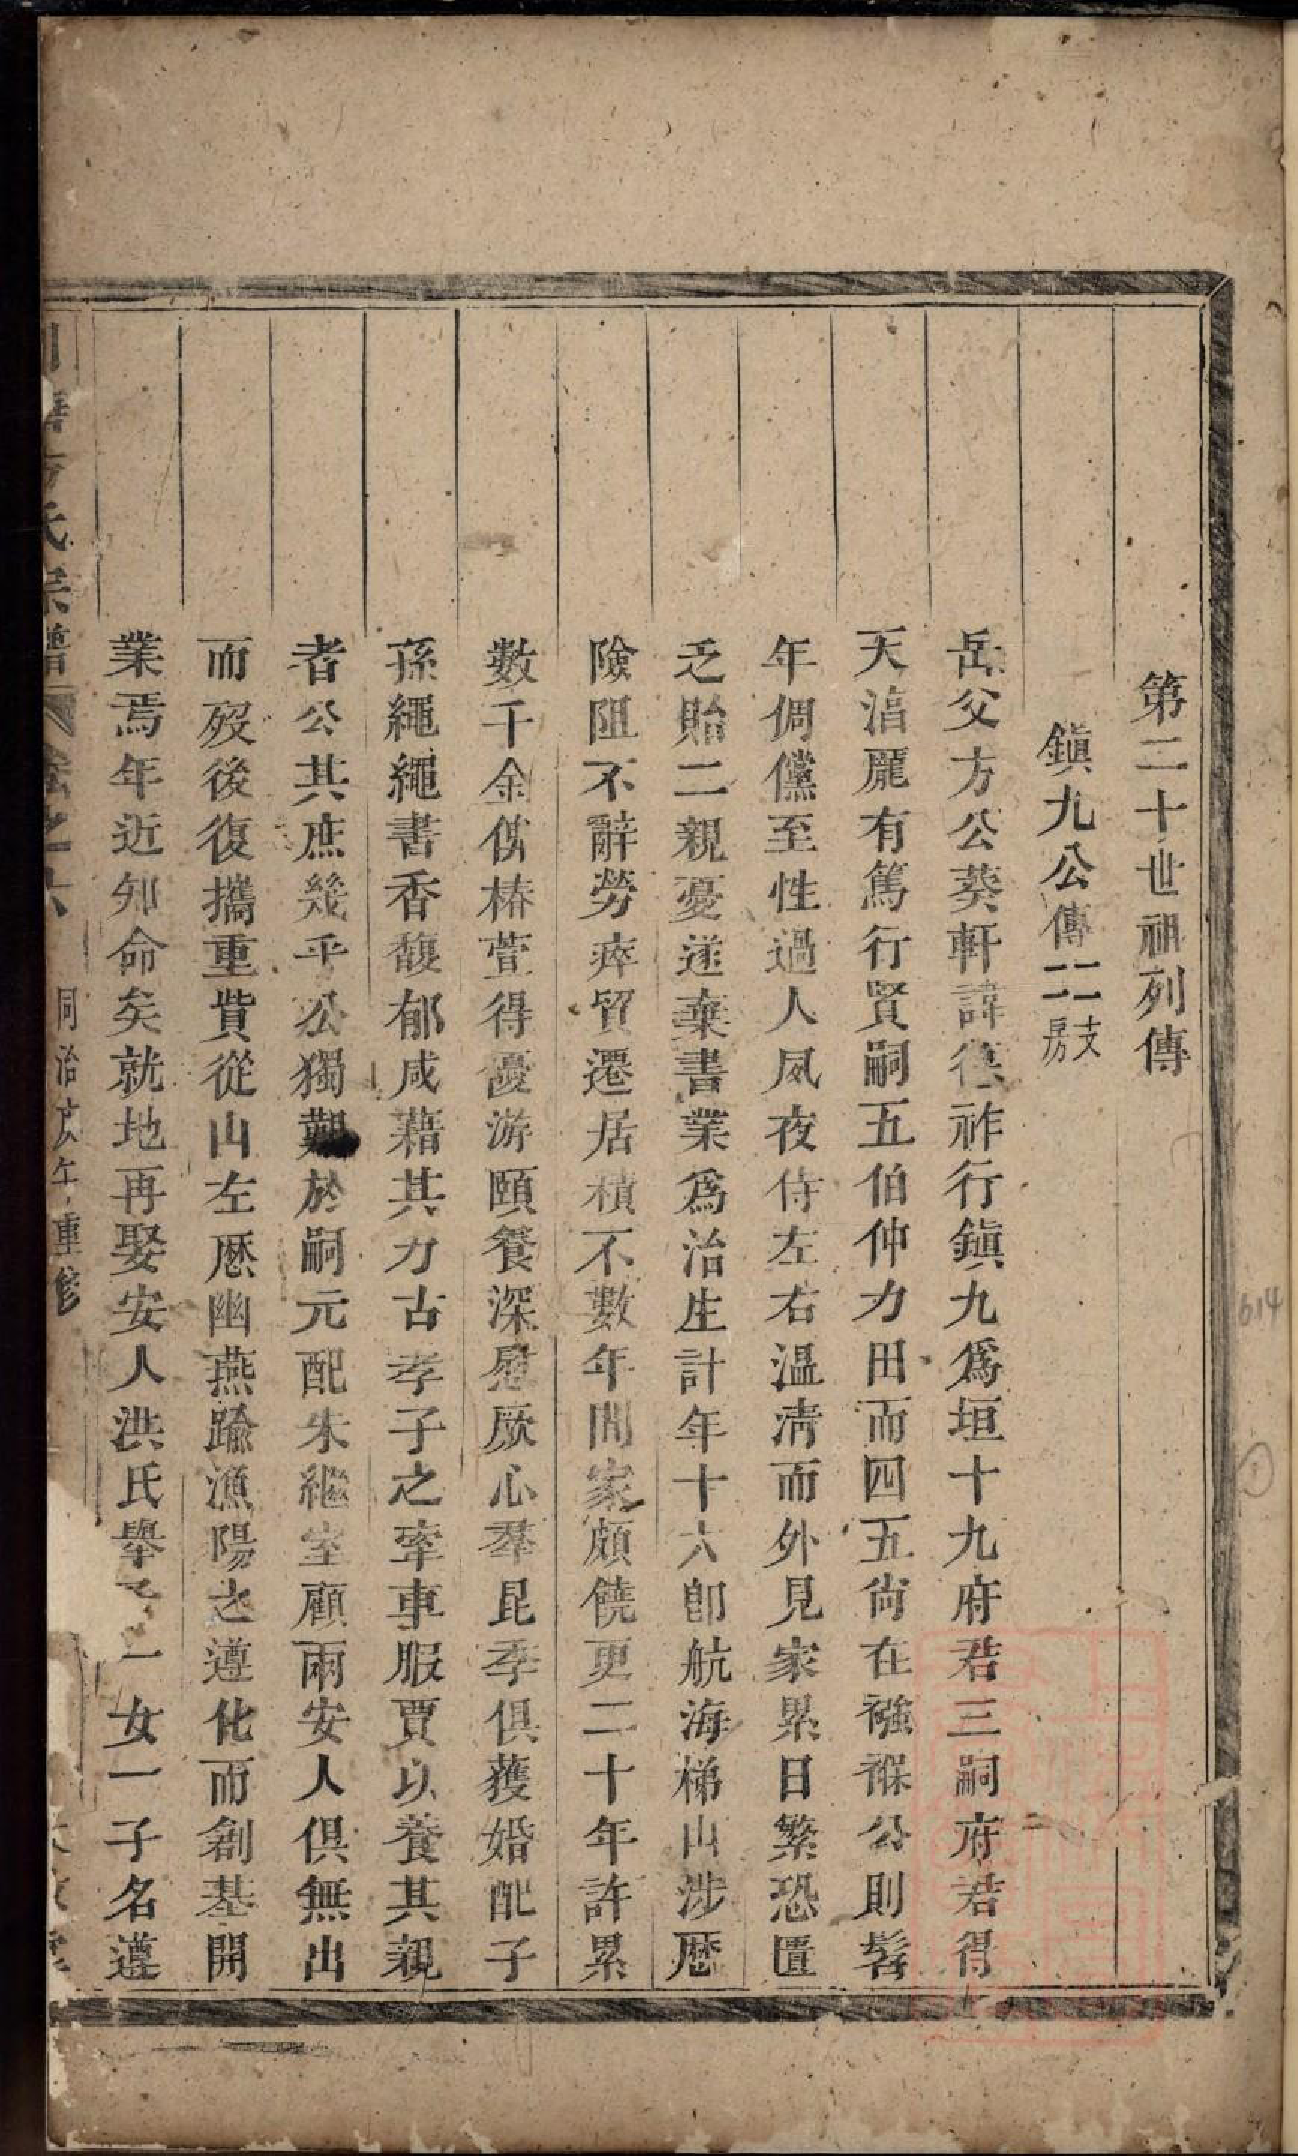 第二十世祖列傳
鎮九公傳二支二房
岳父方公葵軒諱德祚行鎮九爲垣十九府君三嗣府君得
天湻龎有篤行賢嗣五伯仲力田而四五尙在襁褓公則髫
年倜儻至性過人夙夜侍左右溫凊而外見家累日繁恐匱
乏貽二親憂遂棄書業爲治生計年十六卽航海梯山涉歷
險阻不辭勞瘁貿遷居積不數年間家頗饒更二十年許累
數千金俾椿萱得優游頤養深慰厥心羣昆季俱獲婚配子
孫繩繩書香馥郁咸藉其力古孝子之牽車服賈以養其親
者公其庶幾乎公獨艱於嗣元配朱繼室顧兩安人俱無出
而歿後復攜重貲從山左歷幽燕踰漁陽之遵化而創基開
業焉年近知命矣就地再娶安人洪氏舉子一女一子名遵
方氏宗譜 卷之六 同治庚午重修
614
1